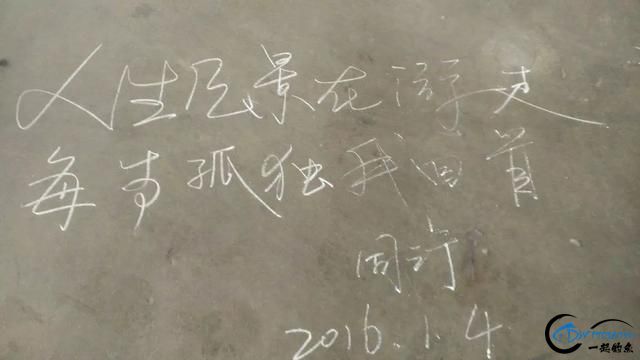 人生风景在游走
每当孤独我回首
2016.1.4
一起钓鱼